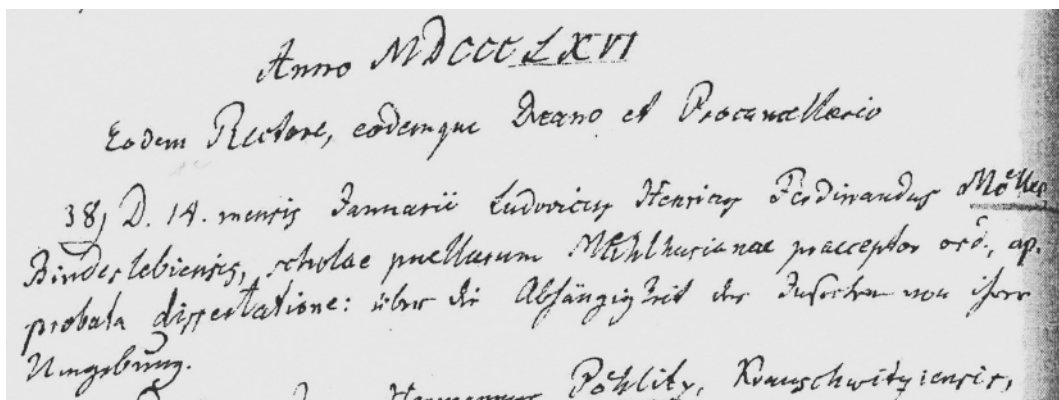 Anno MDCCCLXVI
Eodem Rectore, eodemque Decano et Procancellario
38) D. 14. mensis Januarii Ludovicus Henricus Ferdinandus Möller
Bindeslebiensis, scholae puellarum Mühlhusianae praeceptor ord., ap-
probata dissertatione: über die Abhängigkeit der Insecten von ihrer
Umgebung.
Hermannus Pöhlitz, Krauschwitziensis,